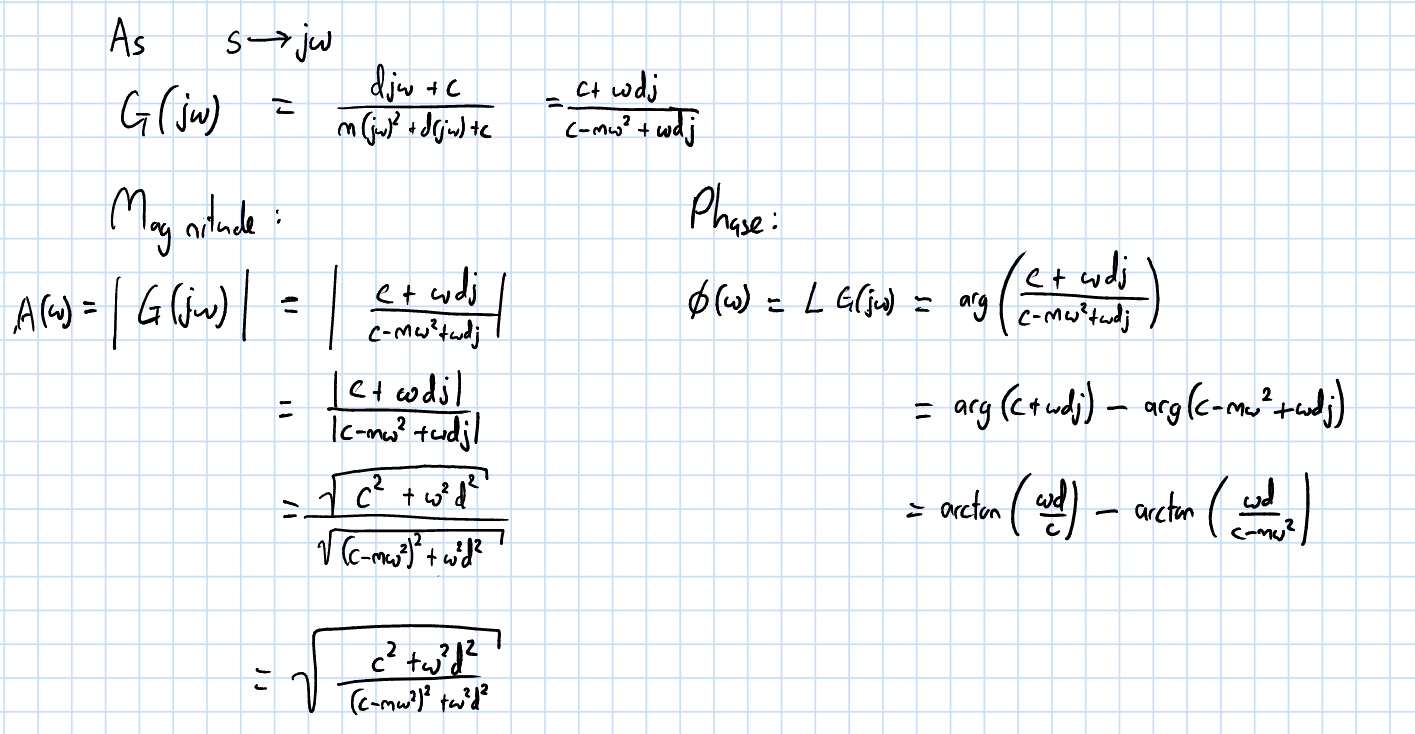 As s → jω
G(jω) = (djω + c)/(m(jω)² + d(jω) + c) = (c + ωdj)/(c-mω² + ωdj)
Magnitude:
A(ω) = |G(jω)| = |(c + ωdj)/(c-mω²+ωdj)|
= |c + ωdj|/|c-mω² + ωdj|
= √(c² + ω²d²)/√((c-mω²)² + ω²d²)
= √((c² + ω²d²)/((c-mω²)² + ω²d²))
Phase:
ϕ(ω) = ∠ G(jω) = arg((c + ωdj)/(c-mω²+ωdj))
= arg(c+ωdj) – arg(c-mω²+ωdj)
= arctan(ωd/c) – arctan(ωd/(c-mω²))